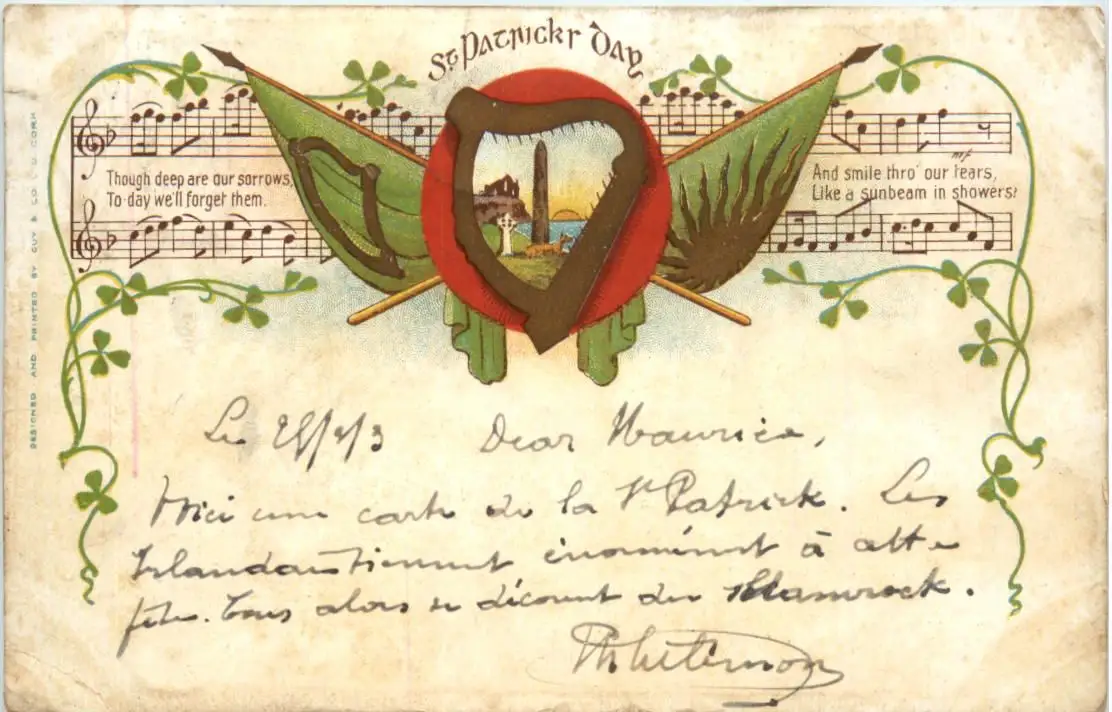 St Patricks Day
Though deep are our sorrows,
To-day we'll forget them.
And smile thro' our tears,
Like a sunbeam in showers:
mf
DESIGNED AND PRINTED BY GUY & CO LTD CORK
Le Dear Maurice,
Voici une carte de la St Patrick. Les
Irlandais tiennent énormément à cette
fête. Tous alors se décorent du Shamrock.